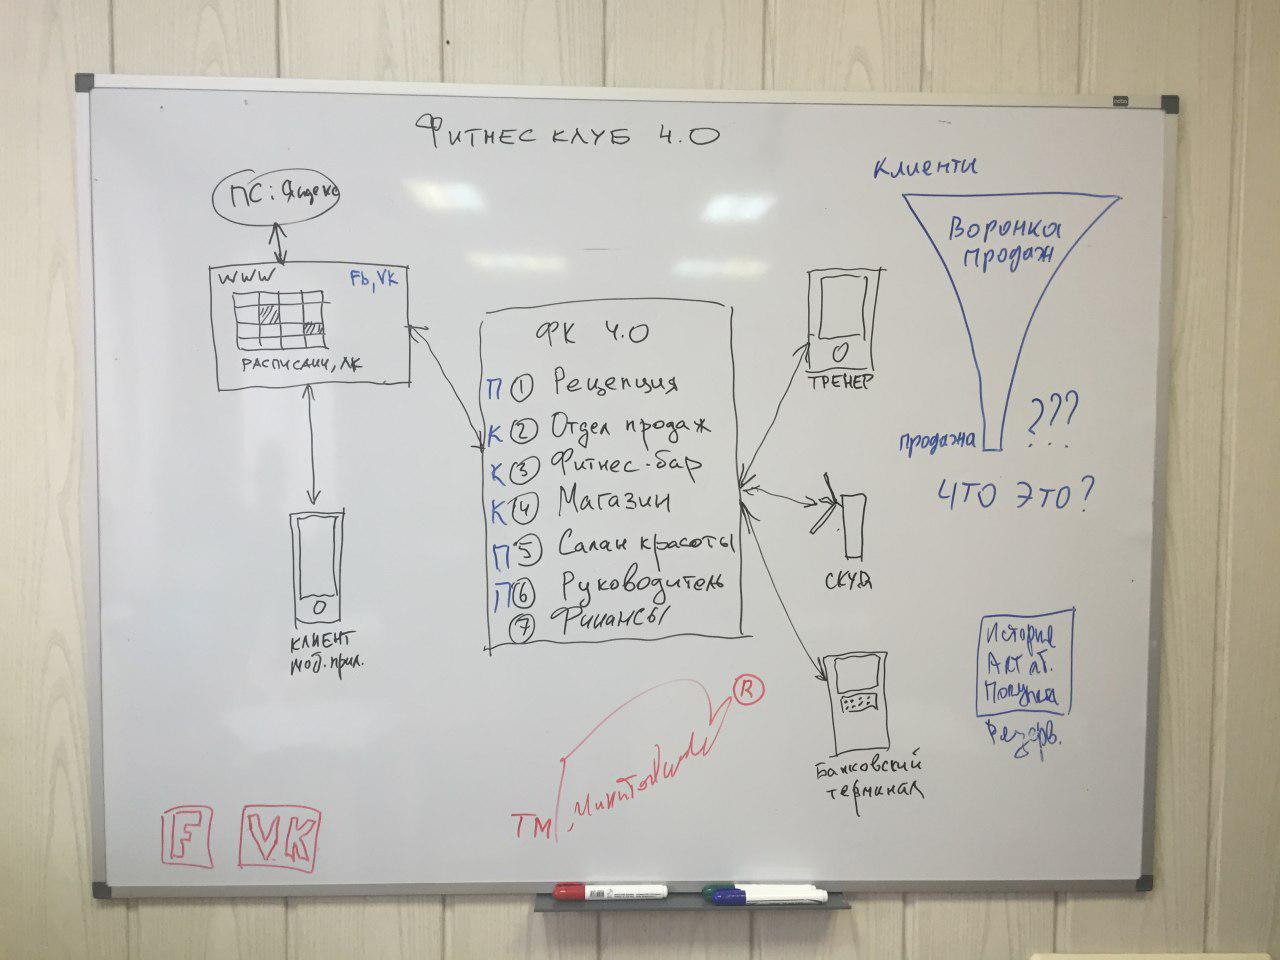 Фитнес клуб 4.0
ПС: Яндекс
www
Fb, VK
Расписани, ЛК
Клиент
моб. прил.
ФК 4.0
П 1 Рецепция
К 2 Отдел продаж
К 3 Фитнес-бар
К 4 Магазин
П 5 Салан красоты
П 6 Руководитель
7 Финансы
ТРЕНЕР
СКУД
Банковский
терминал
Клиенты
Воронка
продаж
продажа
???
ЧТО ЭТО?
История
Покупки
Резерв.
R
TM
F
VK